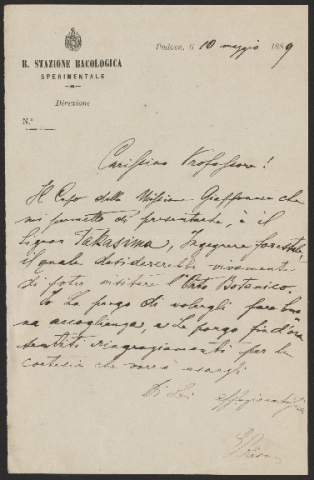 R. STAZIONE BACOLOGICA
SPERIMENTALE
Direzione
N.°
Padova, li 10 maggio 1889
Carissimo Professore!
Il Capo della Missione Giapponese che
mi permetto di presentarle, è il
Signor Takasima, Ingegnere forestale,
il quale desidererebbe vivamente
di poter visitare l'Orto Botanico.
Io La prego di volergli fare buo
na accoglienza, e Le porgo fin d'ora
sentiti ringraziamenti per la
cortesia che vorrà usargli
Di Lei